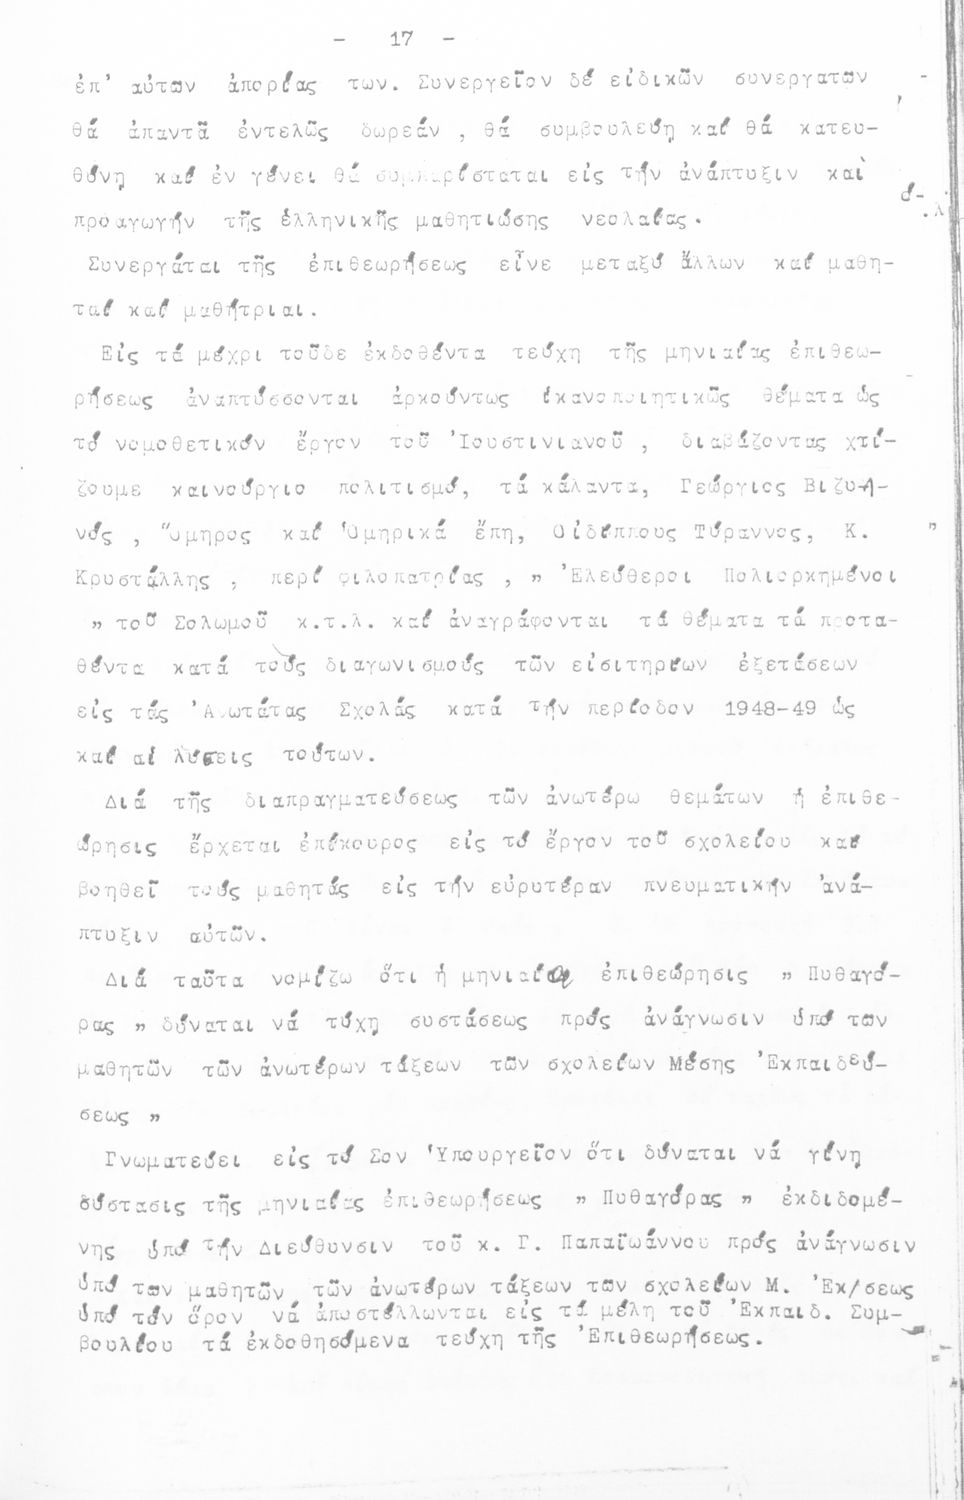 - 17 -
ἐπ' αὐτῶν ἀπορίας των. Συνεργεῖον δέ εἰδικῶν συνεργατῶν
θά ἀπαντᾶ ἐντελῶς δωρεάν , θά συμβουλεύη καί θά κατευ-
θύνη καί ἐν γένει θά συμπαρίσταται εἰς τήν ἀνάπτυξιν καί
προαγωγήν τῆς ἑλληνικῆς μαθητιώσης νεολαίας.
Συνεργάται τῆς ἐπιθεωρήσεως εἶνε μεταξύ ἄλλων καί μαθη-
ταί καί μαθήτριαι.
Εἰς τά μέχρι τοῦδε ἐκδοθέντα τεύχη τῆς μηνιαίας ἐπιθεω-
ρήσεως ἀναπτύσσονται ἀρκούντως ἱκανοποιητικῶς θέματα ὡς
τό νομοθετικόν ἔργον τοῦ 'Ιουστινιανοῦ , διαβάζοντας χτί-
ζουμε καινούργιο πολιτισμό, τά κάλαντα, Γεώργιος Βιζυη-
νός , "Ομηρος καί 'Ομηρικά ἔπη, Οἰδίππους Τύραννος, Κ.
Κρυστάλλης , περί φιλοπατρίας , " 'Ελεύθεροι Πολιορκημένοι
" τοῦ Σολωμοῦ κ.τ.λ. καί ἀναγράφονται τά θέματα τά προτα-
θέντα κατά τούς διαγωνισμούς τῶν εἰσιτηρίων ἐξετάσεων
εἰς τάς 'Ανωτάτας Σχολάς κατά τήν περίοδον 1948-49 ὡς
καί αἱ λύσεις τούτων.
Διά τῆς διαπραγματεύσεως τῶν ἀνωτέρω θεμάτων ἡ ἐπιθε-
ώρησις ἔρχεται ἐπίκουρος εἰς τό ἔργον τοῦ σχολείου καί
βοηθεῖ τούς μαθητάς εἰς τήν εὐρυτέραν πνευματικήν 'ανά-
πτυξιν αὐτῶν.
Διά ταῦτα νομίζω ὅτι ἡ μηνιαία ἐπιθεώρησις " Πυθαγό-
ρας " δύναται νά τύχη συστάσεως πρός ἀνάγνωσιν ὑπό τῶν
μαθητῶν τῶν ἀνωτέρων τάξεων τῶν σχολείων Μέσης 'Εκπαιδεύ-
σεως "
Γνωματεύει εἰς τό Σον 'Υπουργεῖον ὅτι δύναται νά γίνη
σύστασις τῆς μηνιαίας ἐπιθεωρήσεως " Πυθαγόρας " ἐκδιδομέ-
νης ὑπό τήν Διεύθυνσιν τοῦ κ. Γ. Παπαϊωάννου πρός ἀνάγνωσιν
ὑπό τῶν μαθητῶν τῶν ἀνωτέρων τάξεων τῶν σχολείων Μ. 'Εκ/σεως
ὑπό τόν ὅρον νά ἀποστέλλωνται εἰς τά μέλη τοῦ 'Εκπαιδ. Συμ-
βουλίου τά ἐκδοθησόμενα τεύχη τῆς 'Επιθεωρήσεως.